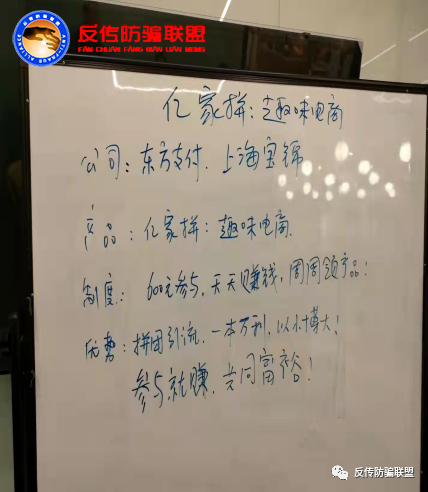 反传防骗联盟
FAN CHUAN FANG PIAN LIAN MENG
亿家拼：趣味电商
公司：东方支付．上海宝锦
产品：亿家拼：趣味电商．
制度：600元参与，天天赚钱，周周领产品！
优势：拼团引流，一本万利，以小博大！
参与就赚，共同富裕！
反传防骗联盟